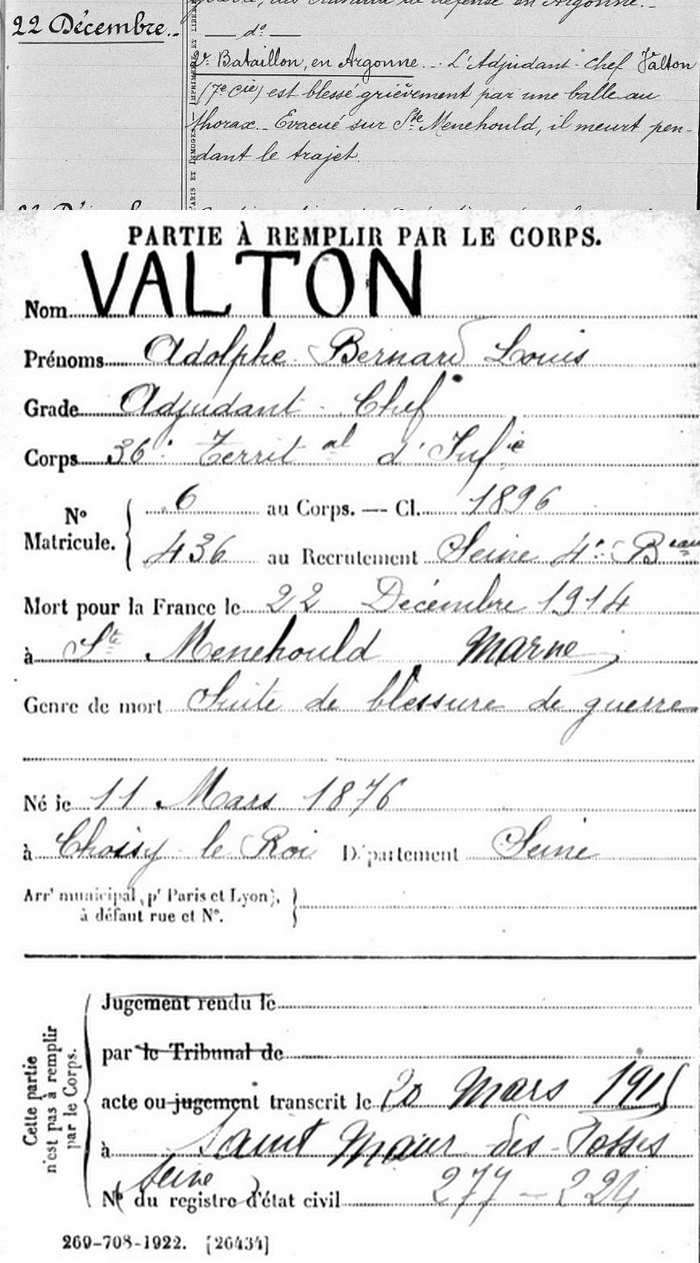 des travaux de défense en Argonne. -
22 Décembre. - — d° —
2e. Bataillon, en Argonne. - L'Adjudant-Chef Valton
(7e Cie) est blessé grièvement par une balle au
thorax. - Evacué sur Ste Menehould, il meurt pen-
dant le trajet.
PARTIE À REMPLIR PAR LE CORPS.
Nom VALTON
Prénoms Adolphe Bernard Louis
Grade Adjudant - Chef
Corps 36e Territ al d'Inf ie
No Matricule. { 6 au Corps. — Cl. 1896
436 au Recrutement Seine 4e Beau
Mort pour la France le 22 Décembre 1914
à Ste Menehould Marne
Genre de mort Suite de blessure de guerre
Né le 11 Mars 1876
à Choisy le Roi Département Seine
Arrt municipal (pr Paris et Lyon), à défaut rue et No. }
Cette partie n'est pas à remplir par le Corps.
Jugement rendu le
par le Tribunal de
acte ou jugement transcrit le 20 Mars 1915
à Saint Maur des-Fossés
Seine
No du registre d'état civil 277 - 224
269-708-1922. [26434]